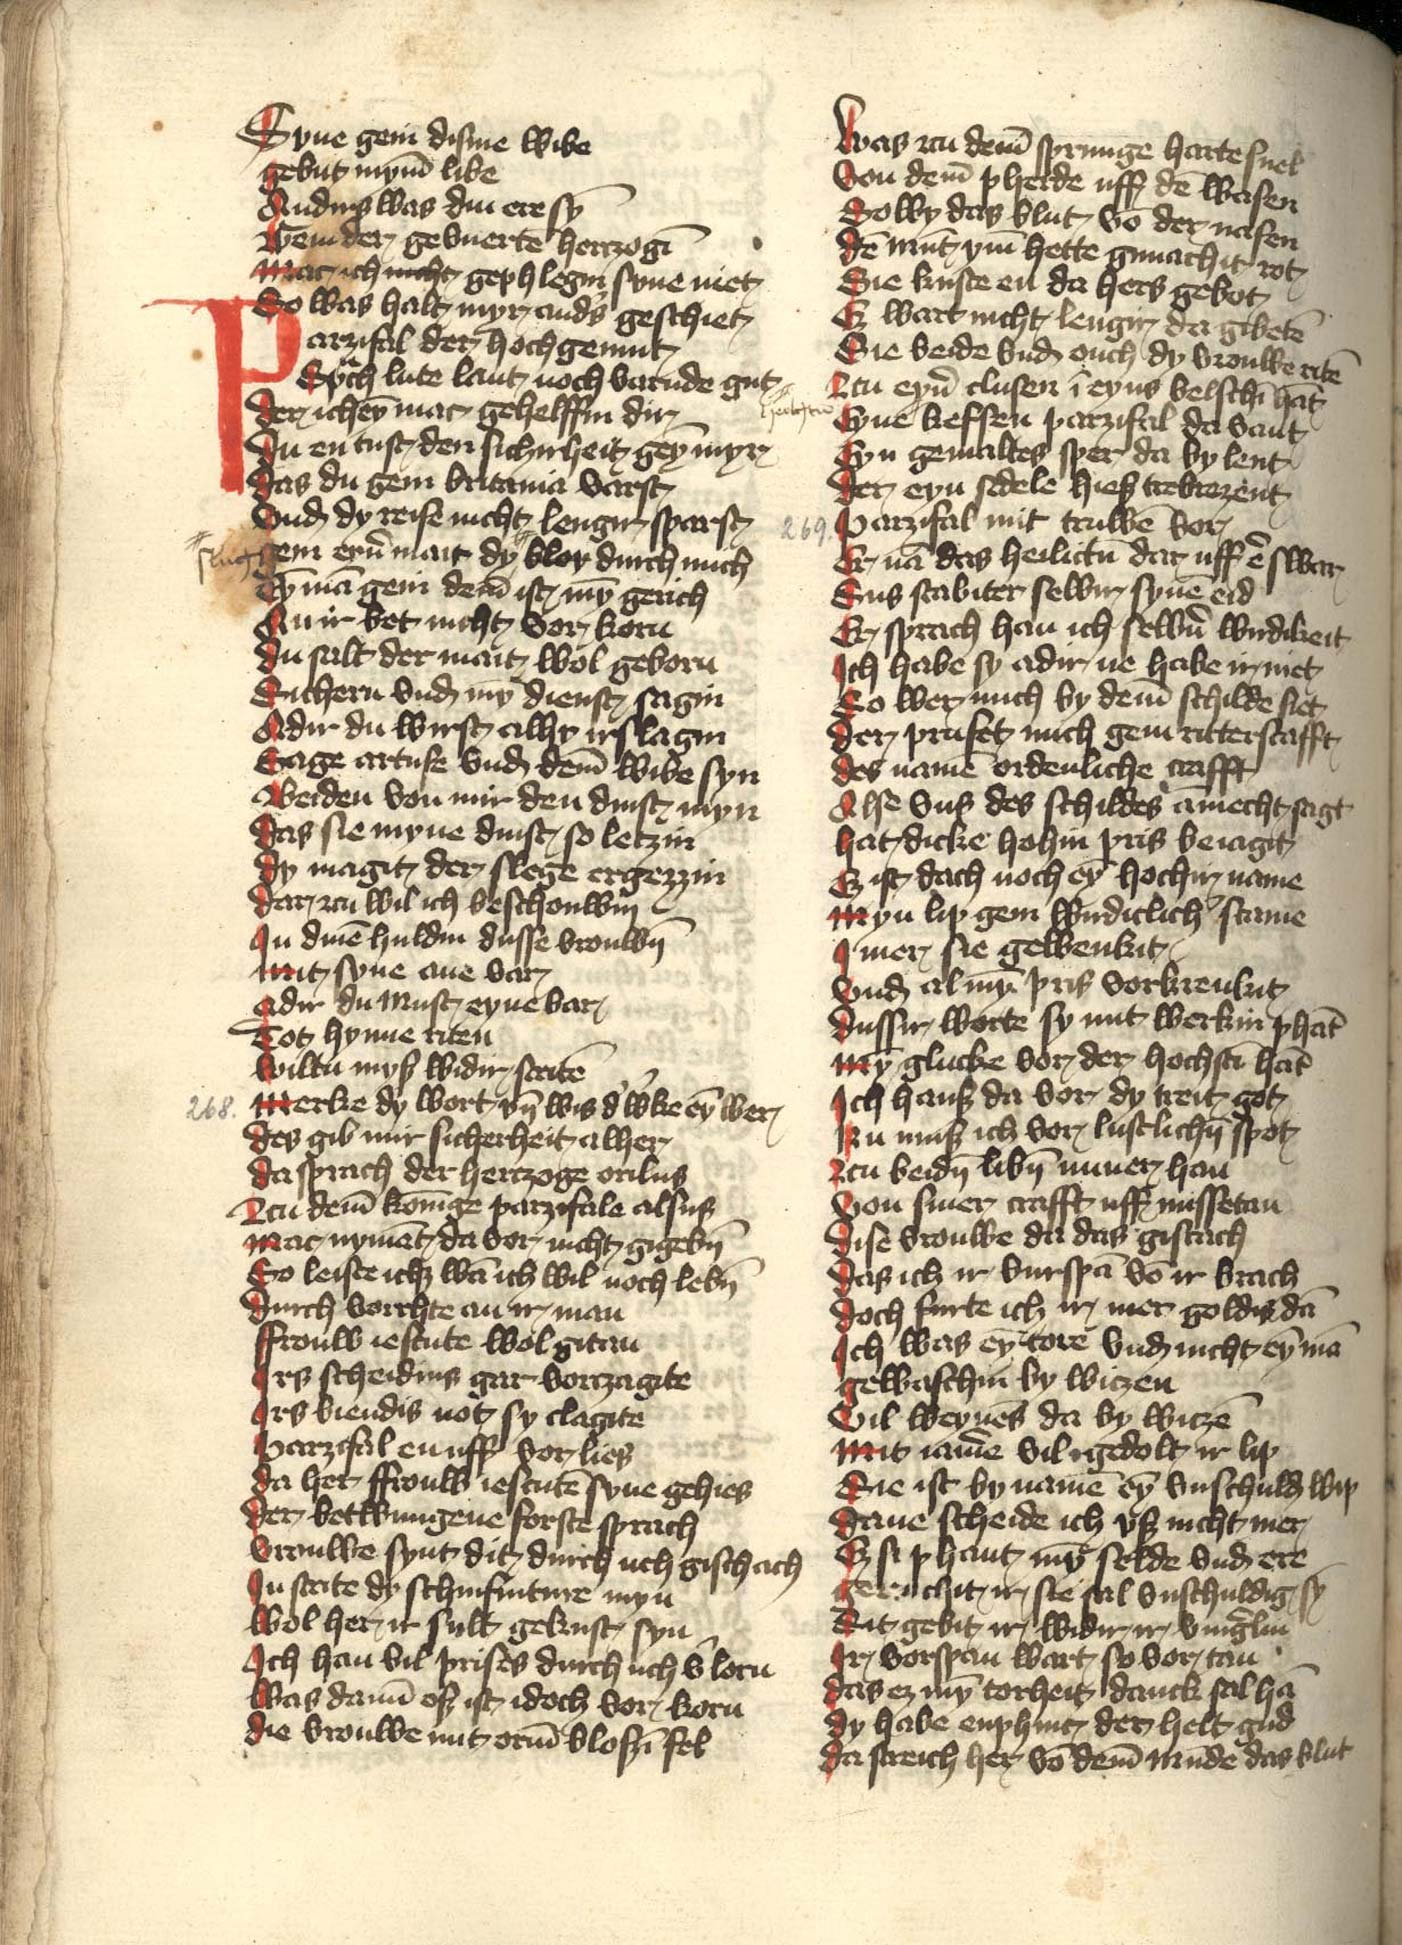 Syne gein disme wibe
gebut mym̄ libe
Anders was din ere sy
Wen der gevnerte hertzogī
Mac ich nicht gephlegin syne niet
So was halt myr anders geschiet
Parzifal der hochgemut
Sprach lute laut noch varnde gut
der icheȳ mac gehelffin dir
Du en tust den sichirheit geȳ myr
das du gein britania varst
Vnd dy reise nicht lengir sparst
Gein eyn̄ mait dy bloy durch mich
Eȳ mā gein dem̄ ist mȳ gerich
An ir bet nicht vor korn
du salt der mait wol geborn
Sichern vnd mȳ dienst sagin
Adir du wirst alhy irslagin
Sage artuse vnd dem̄ wibe syn
Beiden von mir den dinst myn
das sie myne dinst so letzin
dy magit der slege ergezzin
dar zcu wil ich beschouwin
In dinē huldin dusse vrouwī
Mit syne ane var
adir du must eyne bar
Tot hynne riten
wiltu myß widir stritē
268. Merke dy wort vn̄ wis d' w'ke eȳ wer
des gib mir sicherheit alher
da sprach der hertzoge orilus
Zcu dem̄ konīge parzifale alsus
mac nymāt da vor nicht gigebī
So leiste ichz wā ich wil noch lebī
durch vorchte an ir man
ffrouw iescute wol gitan
Irs scheidins gar vorzagite
Irs viendis not sy clagite
Parzifal en uff vor lies
da her ffrouw iescutē syne gehies
der betwungene forste sprach
vrouwe synt dit durch uch gischach
In strite dy schinfinture myn
wol her ir sult gekust syn
Ich han vil prises durch uch v'lorn
was darum̄ eß ist idoch vor korn
die vrouwe mit orm̄ bloszī fel
Was zcu dem̄ sprunge harte snel
Von dem̄ pherde uff dē wasen
So wy das blut vō der nasen
dē mūt ym̄ hette gimachit rot
Sie kuste en da hers gebot
Ez wart nicht lengir da gibetē
Sie beide vnd ouch dy vrouwe ritē
Zcu eyn̄ clusen ī eyns velschī hāt
Eyne kefsen parzifal da vant
Eyn gemaltes sper da by lent
der eyn sedele hieß trebrezent
269. Parzifal mit truwē vor
Er nā das heilictū dar uff ē swar
Sus stabiter selbir synē eid
Er sprach han ich selbn̄ wirdikeit
Ich habe sy adir ne habe ir niet
So wer mich by dem̄ schilde siet
der prufet mich gein ritterscafft
des namē ordenliche crafft
Alse vns des schildes āmecht sagt
hat dicke hohin pris beiagit
Ez ist dach noch eȳ hochir name
Myn lip gein wirdiclich scame
Imer sie gewenkit
Vnd al mȳ pris vorkrenkit
dussir worte sy mit werkin phāt
Mȳ glucke vor der hochstī hāt
Ich hanß da vor dy treit got
Nu muß ich vor lustlichī spot
Zcu beidī libī nimer han
Von siner crafft uff missetan
dise vrouwe da das gistach
das ich ir vurspā vō ir brach
doch furte ich ir mer goldis dā
Ich was eȳ tore vnd nicht eȳ mā
gewaschin by witzen
Vil weynes da by witzē
Mit iam̄e vil igedolt ir lip
Sie ist by namē eȳ vnschuld wip
dane scheide ich vß nicht mer
Ez si phant mȳ selde vnd ere
geruchit ir sie sal vnschuldig sȳ
Sit gebit ir widir ir vinḡlin
Ir vorspan wart so vor tan
das ez mȳ torheit danck sal hā
dy habe enphinc der helt gud
da streich her vō dem̄ mūde das blut